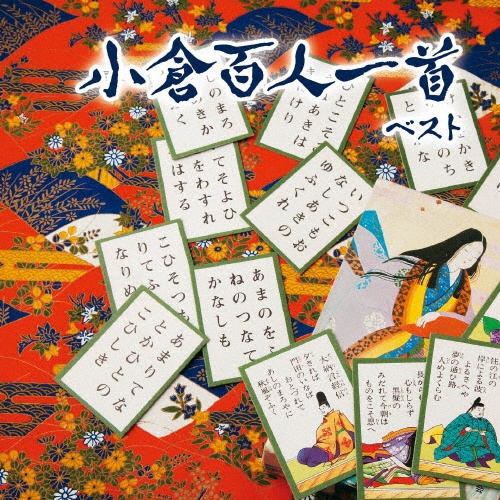 小倉百人一首
ベスト
しのまろ
きか
く
ひとこそ
あきは
けり
てそよひ
をわすれ
はする
いつこもお
なしあきの
ゆふくれ
こひそつ
りてふ
なりぬ
あまのを
ねのつなて
かなしも
あまりてな
とかひとの
こひしき
大納言経信
夕されば
門田のいなば
おとづれて
あしのまろやに
秋風ぞふく
長からむ
心もしらず
黒髪の
みだれて今朝は
ものをこそ思へ
住の江の
岸による波
よるさへや
夢の通ひ路
人めよくらむ